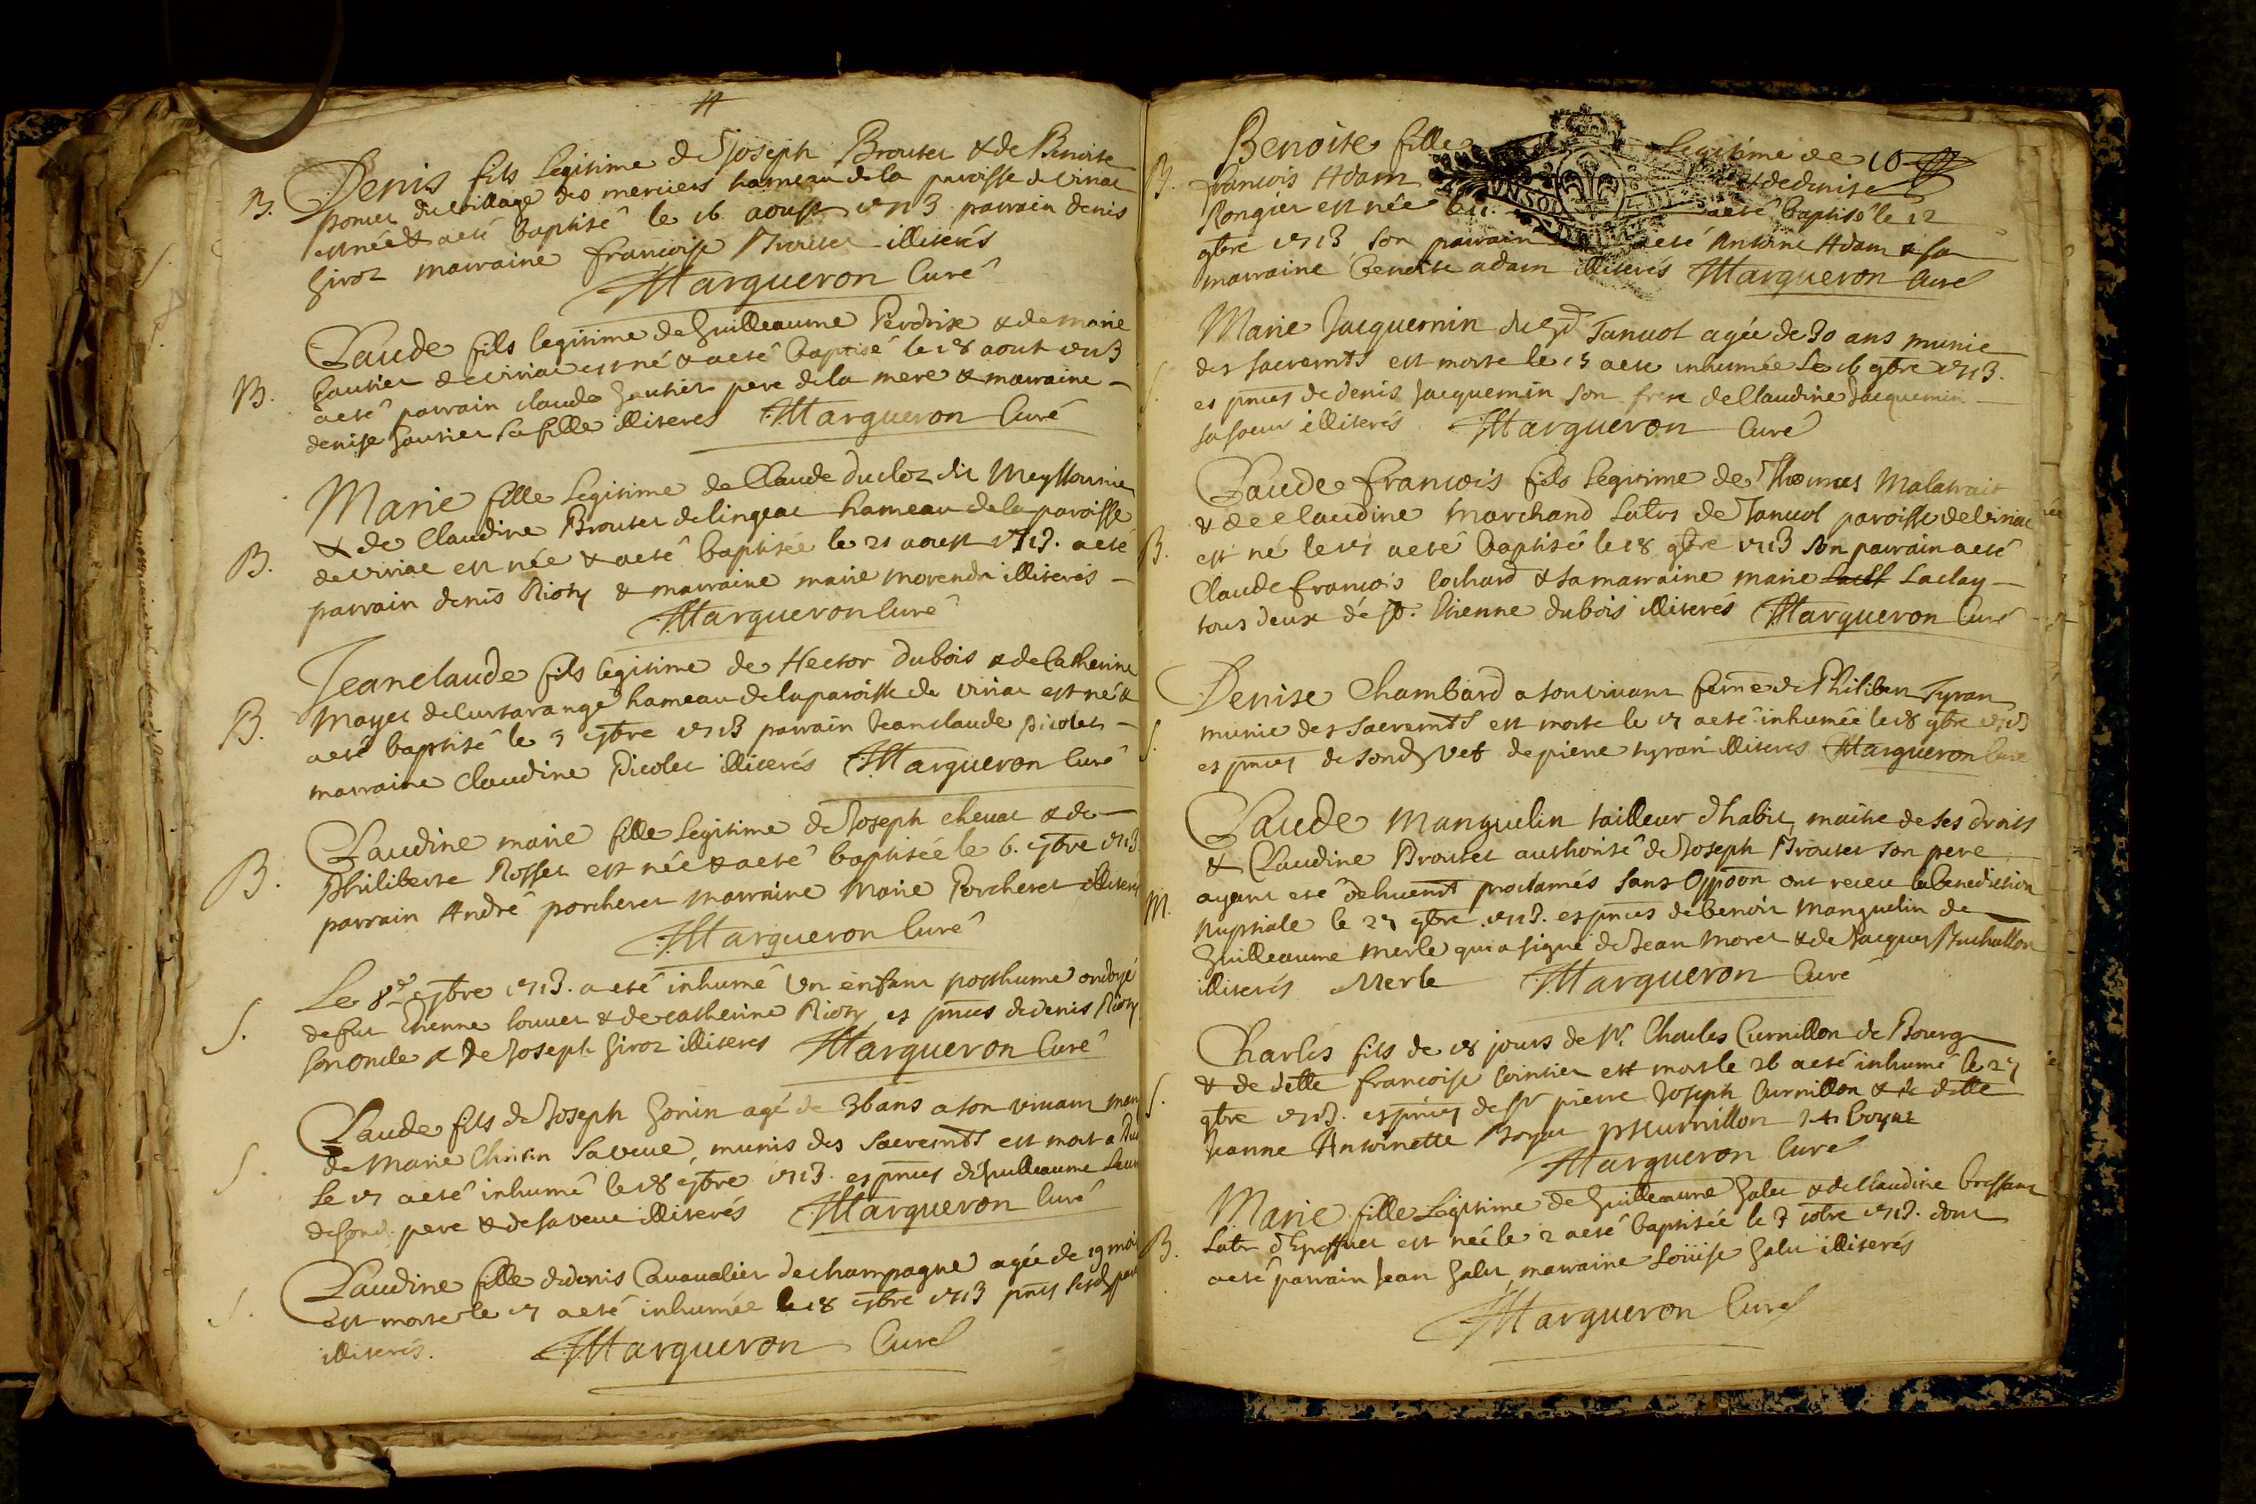 B. Denis fils legitime de Joseph Brouter & de Benoite
poncet du village des merciers hameau de la paroisse de viriat
est né & a eté baptisé le 16 aoust 1713 parrain denis
giroz marraine francoise Brouter illiterés
Margueron Curé
Claude fils legitime de Guilleaume Perdrix & de marie
B. Gautier de viriat est né & a eté baptisé le 18 aout 1713
a eté parrain claude Gautier pere de la mere & marraine
denise Gautier sa fille illiteres Margueron Curé
Marie fille legitime de Claude ducloz dit
& de Claudine Brouter de lingeat hameau de la paroisse
B. de viriat est née & a eté baptisée le 21 aoust 1713. a eté
parrain denis Rioty & marraine marie illiterés
Margueron Curé
Jeanclaude fils legitime de Hector dubois & de Catherine
B. Mayet de Curtarange hameau de la paroisse de viriat est né &
a eté baptisé le 5 7bre 1713 parrain Jeanclaude picolet
marraine Claudine Picolet illiterés Margueron Curé
Claudine marie fille legitime de Joseph chevat & de
B. Philiberte Rosset est née & a eté baptisée le 6. 7bre 1713
parrain André porcheret marraine Marie Porcheret illiterés
Margueron Curé
Le 8e 7bre 1713. a eté inhumé un enfant posthume ondoyé
S. de fut Etienne louvet & de catherine Rioty es pnces de denis Rioty
son oncle & de Joseph giroz illiteres Margueron Curé
Claude fils de Joseph Gonin agé de 36 ans a son vivant
S. de Marie Christin sa veue, munis des sacremts est mort a
le 17 a eté inhumé le 18 7bre 1713. es pnces de Guilleaume
de sond. pere & de sa veue illiterés Margueron Curé
Claudine fille de denis Cavavalier de champagne agée de 19 moi
S. est morte le 17 a eté inhumée le 18 7bre 1713 pnces
illiterés. Margueron Curé
Benoite fille legitime de 10
B. francois Adam & de denise
Rongier est née a eté baptisé le 12
9bre 1713 son parrain a eté Antoine Adam & sa
marraine benoite adam illiterés Margueron Curé
Marie Jacquemin du Gd Tanvol agée de 30 ans munie
S. des sacremts est morte le 15 a eté inhumée le 16 9bre 1713.
es pnces de denis Jacquemin son frere de Claudine Jacquemin
sa soeur illiterés Margueron Curé
Claude francois fils legitime de Thomas Malatrait
& de claudine Marchand Latrs de Tanvol paroisse de viriat
B. est né le 17 a eté baptisé le 18 9bre 1713 son parrain a eté
Claude francois Cochard & sa marraine marie Laclay
tous deux de St. Etienne dubois illiterés Margueron Curé
Denise Chambard a son vivant feme de Philibert Tyran
S. munie des sacremts est morte le 17 a eté inhumée le 18 9bre 1713
es pnces de sond vef de pierre tyran illiteres Margueron Curé
Claude Manguelin tailleur d'habit, maitre de ses droits
& Claudine Brouter authorisé de Joseph Brouter son pere
M. ayant eté dehuemt proclamés sans oppoon ont receu la benediction
nuptiale le 27 9bre 1713. es pnces de benoit Manguelin de
Guilleaume Merle qui a signé de Jean Moret & de Jacques Buchallon
illiterés Merle Margueron Curé
Charles fils de 18 jours de Sr. Charles Curnillon de Bourg
& de delle francoise Cointier est mort le 26 a eté inhumé le 27
S. 9bre 1713. es pnces de Sr pierre Joseph Curnillon & de delle
Jeanne Antoinette Boyat PJCurnillon J A boyat
Margueron Curé
Marie fille legitime de Guilleaume Galet & de Claudine bressant
B. Latr est née le 2 a eté baptisée le 3 10bre 1713. dont
a eté parrain Jean Galet marraine Louise Galet illiterés
Margueron Curé